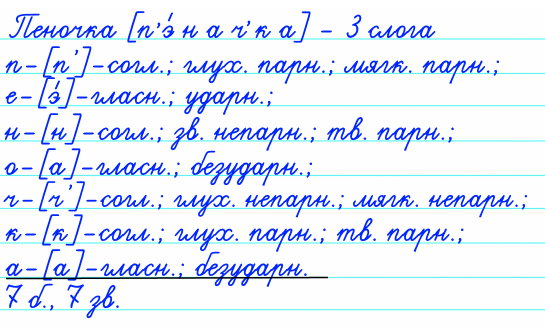 Пеночка [п’э́ н а ч’ к а] – 3 слога
п – [п’] – согл.; глух. парн.; мягк. парн.;
е – [э́] – гласн.; ударн.;
н – [н] – согл.; зв. непарн.; тв. парн.;
о – [а] – гласн.; безударн.;
ч – [ч’] – согл.; глух. непарн.; мягк. непарн.;
к – [к] – согл.; глух. парн.; тв. парн.;
а – [а] – гласн.; безударн.
7 б., 7 зв.